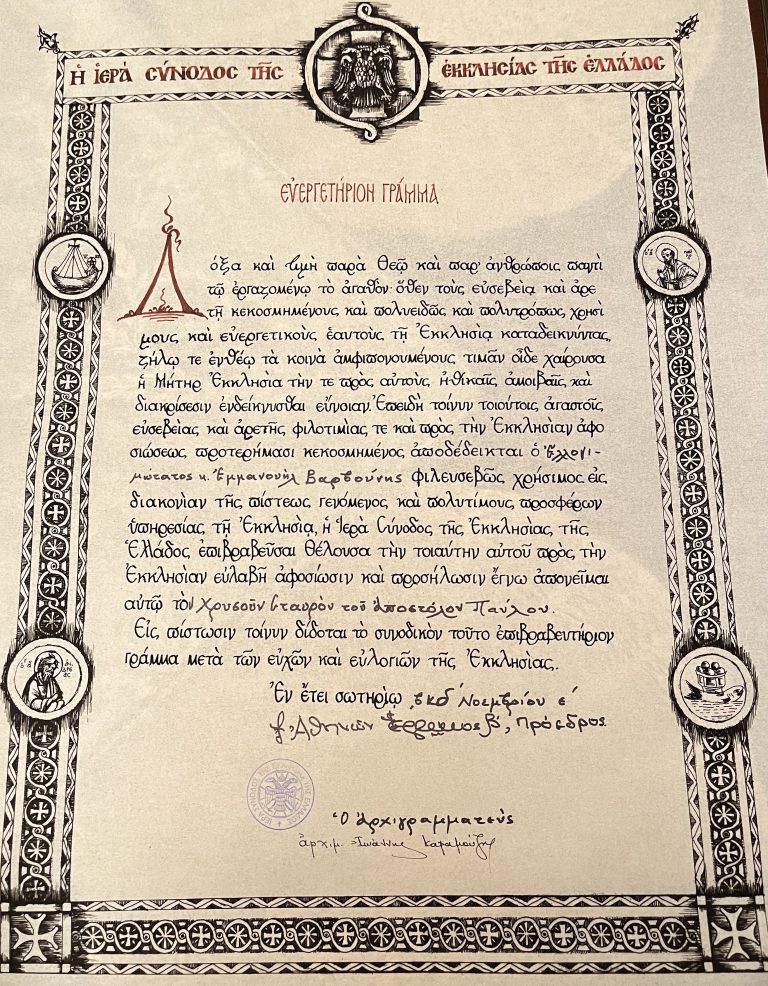 Ἡ ἹΕΡΆ ΣΎΝΟΔΟΣ ΤΗ͂Σ ἘΚΚΛΗΣΊΑΣ ΤΗ͂Σ ἙΛΛΆΔΟΣ
ΕΥ̓ΕΡΓΕΤΉΡΙΟΝ ΓΡΆΜΜΑ
Δόξα καὶ τιμὴ παρὰ Θεῷ καὶ παρ' ἀνθρώποις παντὶ
τῷ ἐργαζομένῳ τὸ ἀγαθὸν· ὅθεν τοὺς εὐσεβείᾳ καὶ ἀρε
τῇ κεκοσμημένους καὶ πολυειδῶς καὶ πολυτρόπως χρησί
μους καὶ εὐεργετικοὺς ἑαυτοὺς τῇ Ἐκκλησίᾳ καταδεικνύντας,
ζήλῳ τε ἐνθέῳ τὰ κοινὰ ἀμφιπονουμένους τιμᾶν οἶδε χαίρουσα
ἡ Μήτηρ Ἐκκλησία τήν τε πρὸς αὐτοὺς ἠθικαῖς ἀμοιβαῖς καὶ
διακρίσεσιν ἐνδείκνυσθαι εὔνοιαν. Ἐπειδὴ τοίνυν τοιούτοις ἀγαστοῖς
εὐσεβείας καὶ ἀρετῆς φιλοτιμίας τε καὶ πρὸς τὴν Ἐκκλησίαν ἀφο
σιώσεως προτερήμασι κεκοσμημένος ἀποδέδεικται ὁ Ἐλλογι-
μώτατος κ. Ἐμμανουὴλ Βαρβούνης φιλευσεβῶς χρήσιμος εἰς
διακονίαν τῆς πίστεως γενόμενος καὶ πολυτίμους προσφέρων
ὑπηρεσίας τῇ Ἐκκλησίᾳ, ἡ Ἱερὰ Σύνοδος τῆς Ἐκκλησίας τῆς
Ἑλλάδος ἐπιβραβεῦσαι θέλουσα τὴν τοιαύτην αὐτοῦ πρὸς τὴν
Ἐκκλησίαν εὐλαβῆ ἀφοσίωσιν καὶ προσήλωσιν ἔγνω ἀπονεῖμαι
αὐτῷ τὸν Χρυσοῦν Σταυρὸν τοῦ Ἀποστόλου Παύλου.
Εἰς πίστωσιν τοίνυν δίδοται τὸ συνοδικὸν τοῦτο ἐπιβραβευτήριον
γράμμα μετὰ τῶν εὐχῶν καὶ εὐλογιῶν τῆς Ἐκκλησίας.
Ἐν ἔτει σωτηρίῳ ͵βκδ' Νοεμβρίου ε'
Ἀθηνῶν Ἱερώνυμος Β', Πρόεδρος
Ὁ Ἀρχιγραμματεὺς
ἀρχιμ. Ἰωάννης Καραμούζης